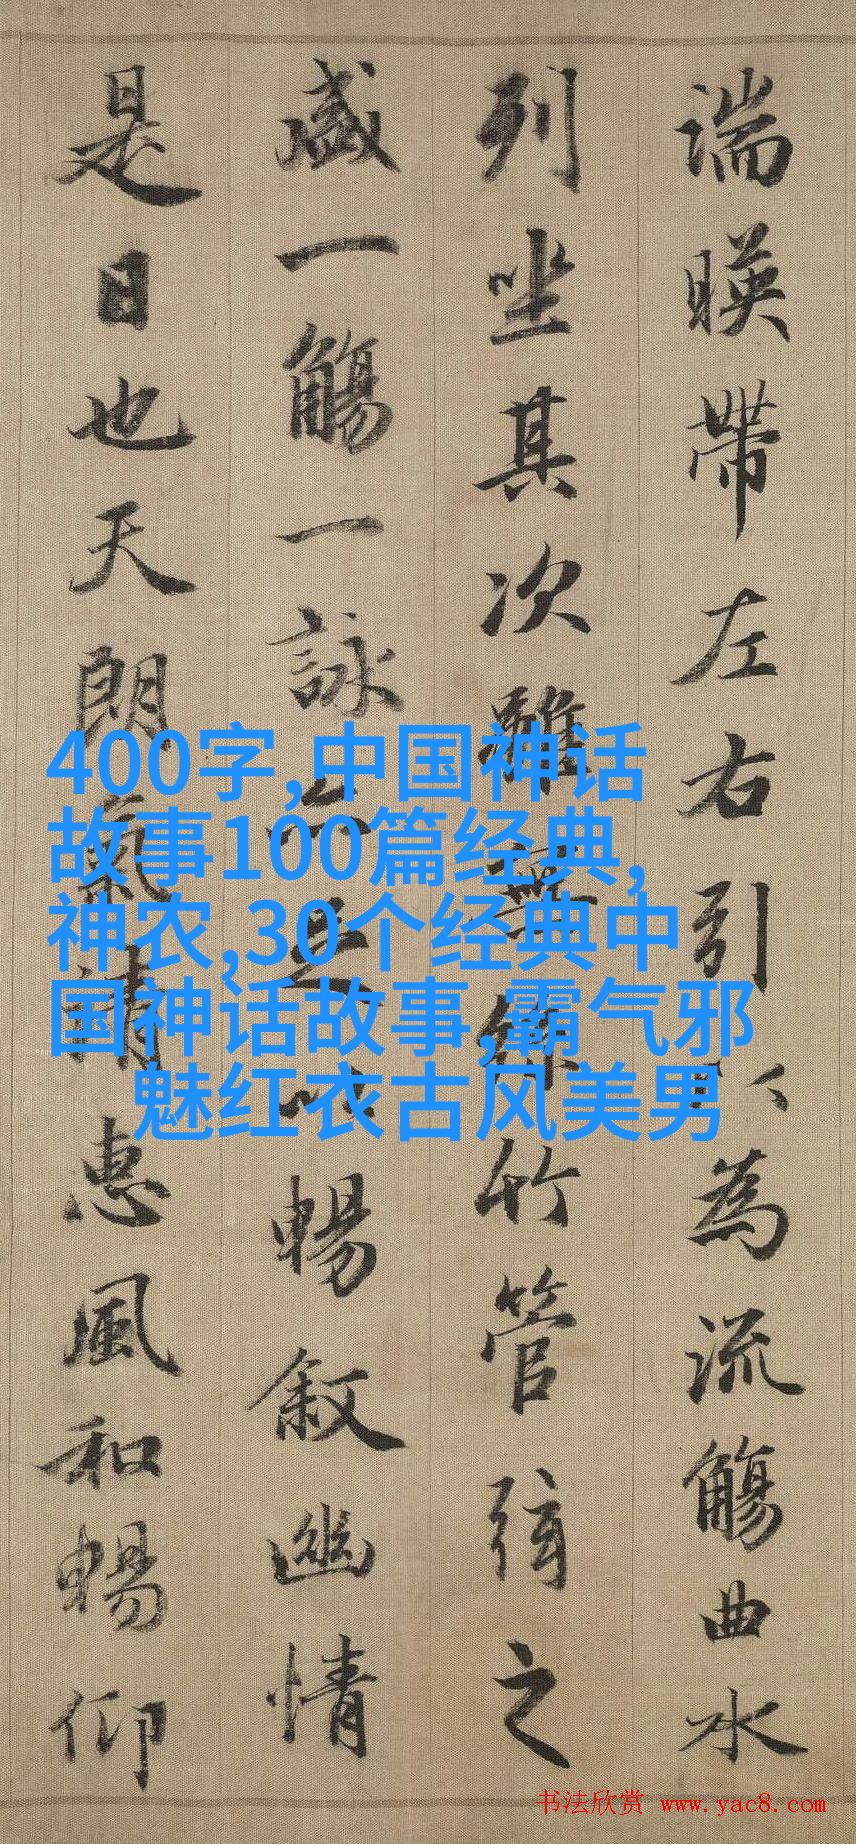 湍暎帶左右引以為流觴曲水
列坐其次雖無絲竹管弦之
盛一觴一詠亦足以暢叙幽情
是日也天朗氣清惠風和暢仰
400字,中国神话
故事100篇经典,
神农,30个经典中
国神话故事,霸气邪
魅红衣古风美男
书法欣赏 www.yac8.com